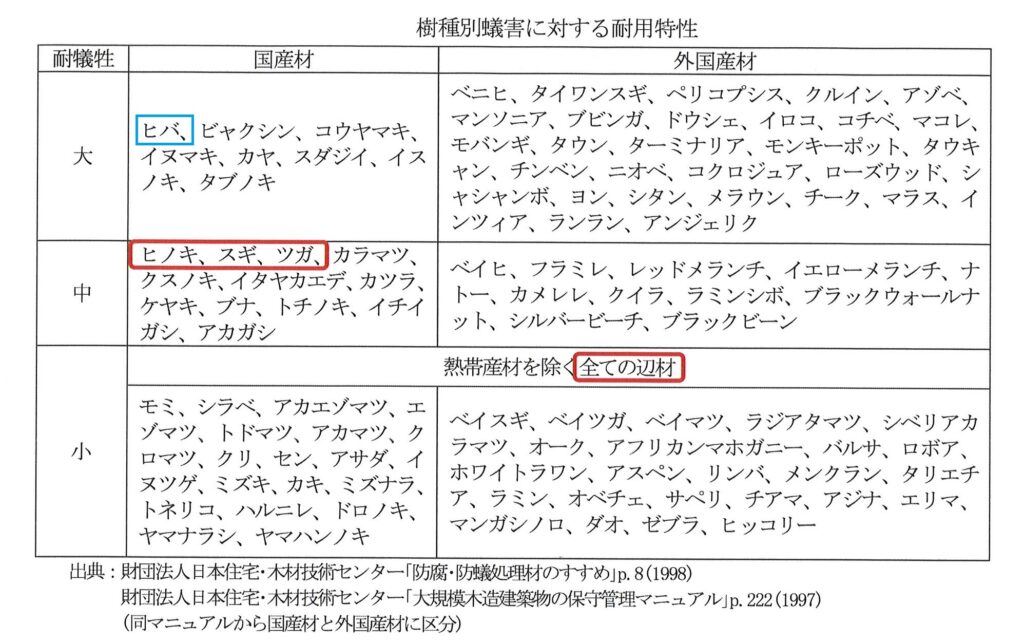 樹種別蟻害に対する耐用特性
耐犠牲
国産材
外国産材
大
ヒバ、ビャクシン、コウヤマキ、
イヌマキ、カヤ、スダジイ、イス
ノキ、タブノキ
ベニヒ、タイワンスギ、ペリコプシス、クルイン、アゾベ、
マンソニア、ブビンガ、ドウシェ、イロコ、コチベ、マコレ、
モバンギ、タウン、ターミナリア、モンキーポット、タウキ
ャン、チンベン、ニオベ、コクロジュア、ローズウッド、シ
ャシャンボ、ヨン、シタン、メラウン、チーク、マラス、イ
ンツィア、ランラン、アンジェリク
中
ヒノキ、スギ、ツガ、カラマツ、
クスノキ、イタヤカエデ、カツラ、
ケヤキ、ブナ、トチノキ、イチイ
ガシ、アカガシ
ベイヒ、フラミレ、レッドメランチ、イエローメランチ、ナ
トー、カメレレ、クイラ、ラミンシボ、ブラックウォールナ
ット、シルバービーチ、ブラックビーン
小
熱帯産材を除く全ての辺材
モミ、シラベ、アカエゾマツ、エ
ゾマツ、トドマツ、アカマツ、ク
ロマツ、クリ、セン、アサダ、イ
ヌツゲ、ミズキ、カキ、ミズナラ、
トネリコ、ハルニレ、ドロノキ、
ヤマナラシ、ヤマハンノキ
ベイスギ、ベイツガ、ベイマツ、ラジアタマツ、シベリアカ
ラマツ、オーク、アフリカンマホガニー、バルサ、ロボア、
ホワイトラワン、アスペン、リンバ、メンクラン、タリエチ
ア、ラミン、オベチェ、サペリ、チアマ、アジナ、エリマ、
マンガシノロ、ダオ、ゼブラ、ヒッコリー
出典：財団法人日本住宅・木材技術センター「防腐・防蟻処理材のすすめ」p.8(1998)
財団法人日本住宅・木材技術センター「大規模木造建築物の保守管理マニュアル」p.222(1997)
(同マニュアルから国産材と外国産材に区分)